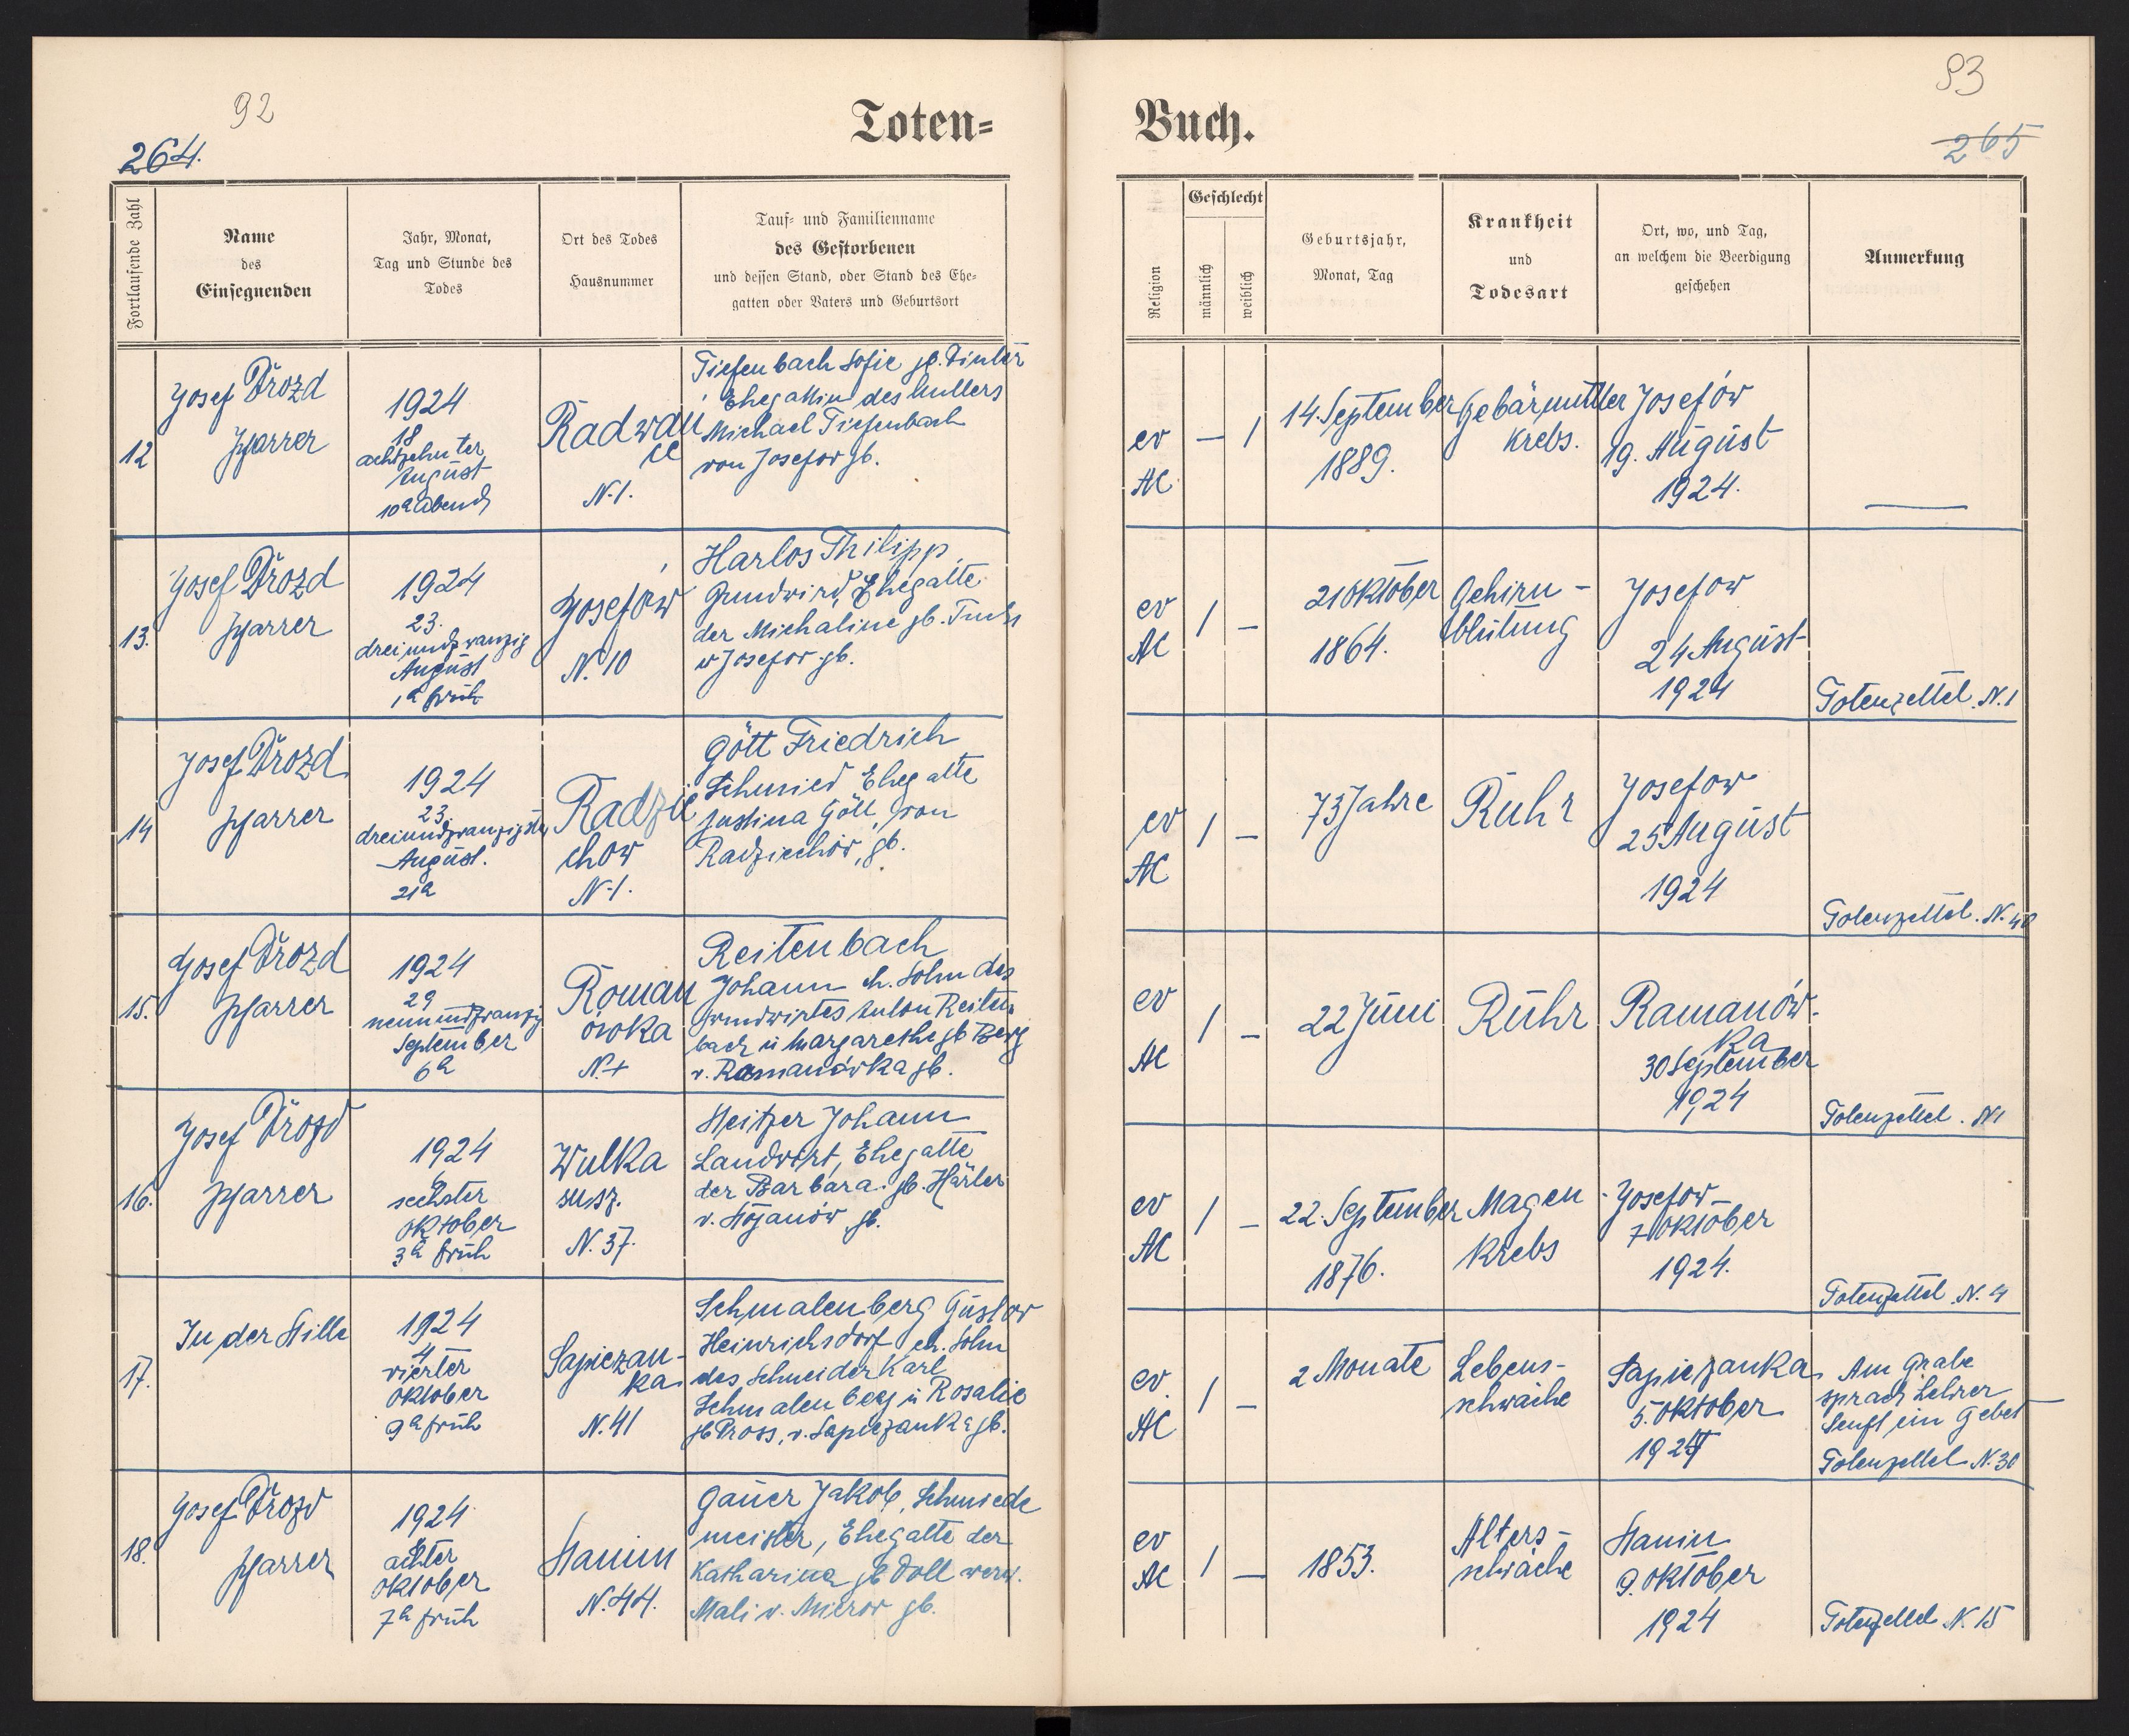 92
264.
Toten=
Fortlaufende Zahl
Name
des
Einsegnenden
Jahr, Monat,
Tag und Stunde des
Todes
Ort des Todes
Hausnummer
Tauf= und Familienname
des Gestorbenen
und dessen Stand, oder Stand des Ehe=
gatten oder Vaters und Geburtsort
12
Josef Drozd
Pfarrer
1924
18
achtzehnter
August
10h Abends
Radwan
ce
N. 1.
Tiefenbach Sofie gb. Zinter
Ehegattin des Müllers
Michael Tiefenbach
von Josefow gb.
13.
Josef Drozd
Pfarrer
1924
23.
dreiundzwanzig
August
1h früh
Josefów
N. 10
Harlos Philipp
Ehegatte
der Michaline gb.
v Josefow gb.
14
Josef Drozd
Pfarrer
1924
23.
dreiundzwanzigster
August.
21h
Radzie
chow
N. 1.
Gött Friedrich
Schmied Ehegatte
Justina Gött, von
Radziechów, gb.
15.
Josef Drozd
Pfarrer
1924
29
neunundzwanzig
September
6h
Roman
ówka
N. +
Reitenbach
Johann eh. Sohn des
Grundwirtes Anton Reiten
bach u Margarethe gb Berg
v. Romanówka gb.
16.
Josef Drozd
Pfarrer
1924
6
sechster
Oktober
3h früh
Wulka
susz.
N. 37.
Heitzer Johann
Landwirt, Ehegatte
der Barbara gb. Härler
v. Stojanów gb.
17.
In der Stille
1924
4
vierter
Oktober
9h früh
Sapiezan-
ka
N. 41
Schmalenberg Gustav
Heinrichsdorf eh. Sohn
des Schneider Karl
Schmalenberg u Rosalie
gb Pross, v. Sapiezanka gb.
18.
Josef Drozd
Pfarrer
1924
8
achter
Oktober
7h früh
Stanin
N. 44.
Gauer Jakob, Schmiede
meister, Ehegatte der
Katharina gb Doll verw.
Mali v. gb.
93
265
Buch.
Religion
Geschlecht
männlich
weiblich
Geburtsjahr,
Monat, Tag
Krankheit
und
Todesart
Ort, wo, und Tag,
an welchem die Beerdigung
geschehen
Anmerkung
ev
AC
— 1
14. September
1889.
Gebärmutter
krebs.
Josefów
19. August
1924.
—
ev
AC
1 —
21 Oktober
1864.
Gehirn -
blutung
Josefow
24 August
1924
Totenzettel. N. 1
ev
AC
1 —
73 Jahre
Ruhr
Josefow
25 August
1924
Totenzettel. N. 40
ev
AC
1 —
22 Juni
Ruhr
Ramanów-
ka
30 September
1924
Totenzettel. N 1
ev
AC
1 —
22. September
1876.
Magen -
krebs
Josefow
7 Oktober
1924.
Totenzettel N. 4
ev.
AC
1 —
2 Monate
Lebens-
schwäche
Sapiezanka
5. Oktober
1924
Am Grabe
sprach Lehrer
Senft ein Gebet
Totenzettel N. 30
ev
AC
1 —
1853.
Alters-
schwäche
Stanin
9. Oktober
1924
Totenzettel N. 15